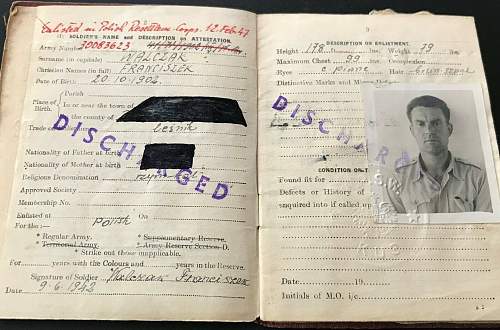 Enlisted in Polish Resettlem. Corps. 12. Feb. 47
(1) SOLDIER'S NAME and DESCRIPTION on ATTESTATION.
Army Number 30083623
Surname (in capitals) WALCZAK
Christian Names (in full) FRANCISZEK
Date of Birth 20.10.1902.
Place of Birth. Parish
In or near the town of
the county of
Trade on
DISCHARGED
Nationality of Father at birth
Nationality of Mother at birth
Religious Denomination
Approved Society
Membership No.
Enlisted at Polish On
For the :—
* Regular Army. * Supplementary Reserve.
* Territorial Army. * Army Reserve Section D.
* Strike out those inapplicable.
For years with the Colours and years in the Reserve.
Signature of Soldier Walczak Franciszek
Date 9-6-1942
3
DESCRIPTION ON ENLISTMENT.
Height ft. ins. Weight lbs.
Maximum Chest ins.
Eyes Hair
Distinctive Marks and
CONDITION ON
Found fit for
Defects or History of
enquired into if called up
Date 19
Initials of M.O. i/c